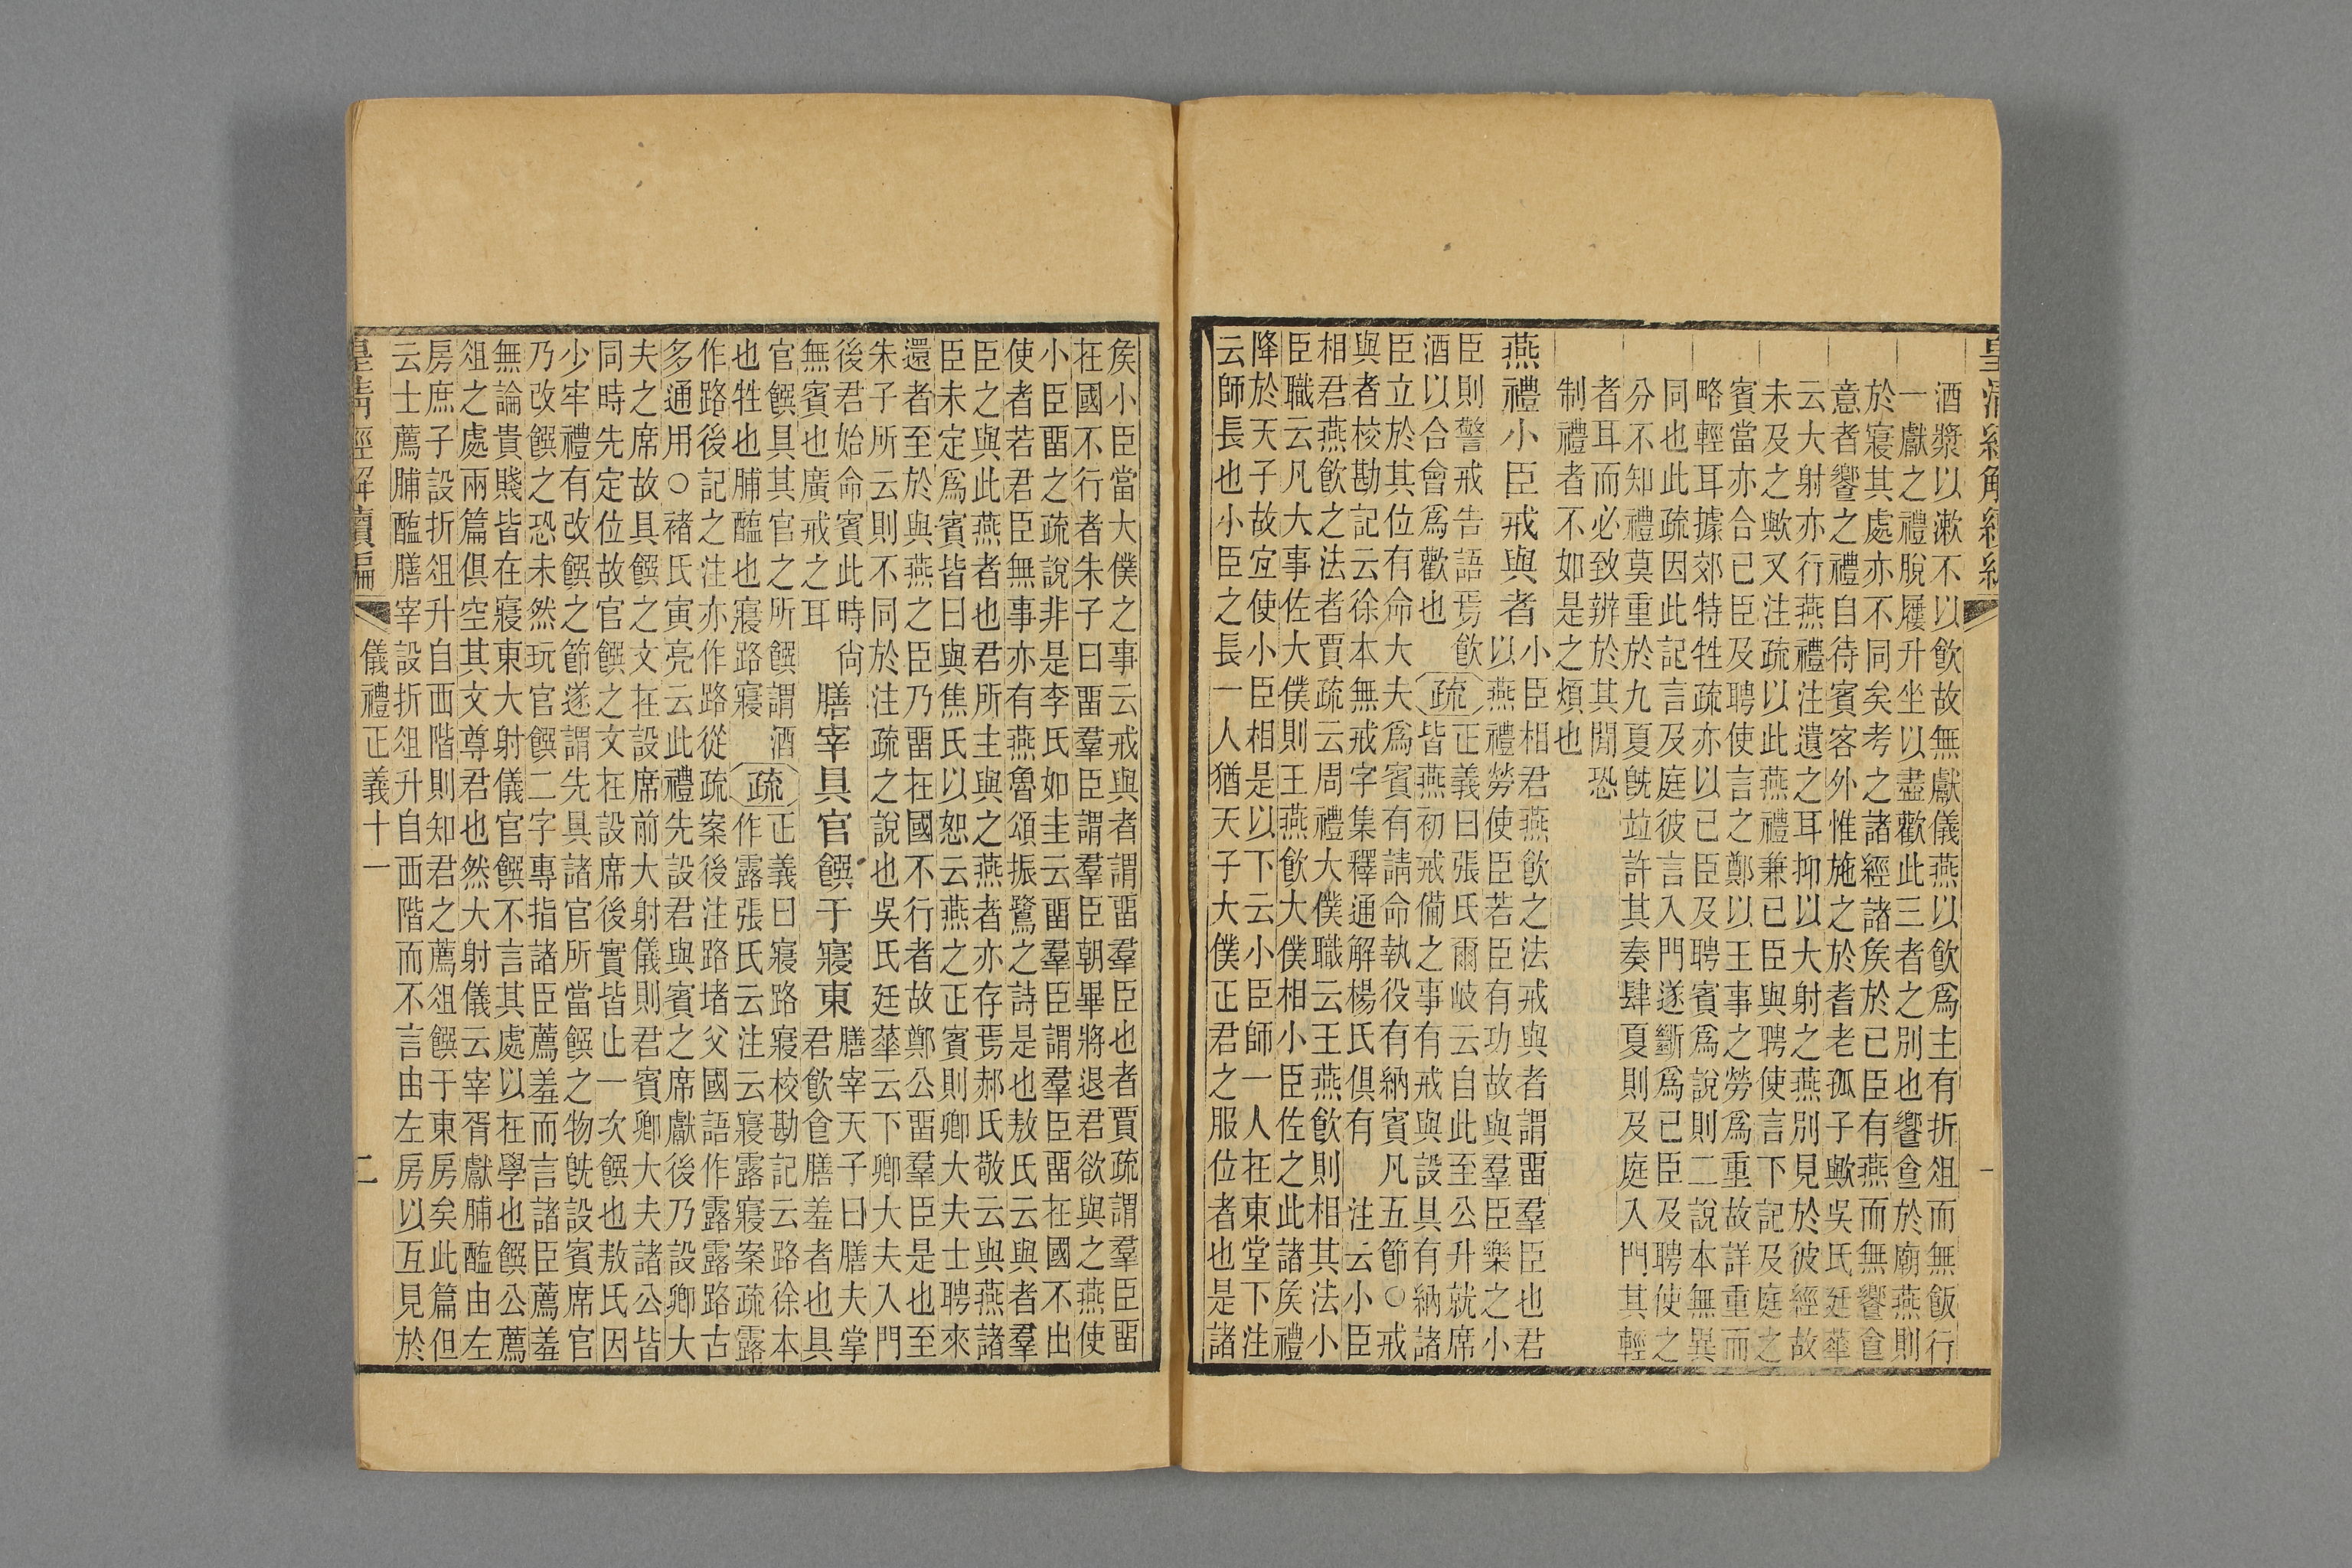 皇清經解續編
一
酒漿以漱不以飲故無獻儀燕以飲爲主有折俎而無飯行
一獻之禮脫屨升坐以盡歡此三者之別也饗𩚁於廟燕則
於寢其處亦不同矣考之諸經諸矦於已臣有燕而無饗𩚁
意者饗之禮自待賓客外惟施之於耆老孤子歟吳氏廷華
云大射亦行燕禮注遺之耳抑以大射之燕別見於彼經故
未及之歟又注疏以此燕禮兼已臣與聘使言下記及庭之
賓當亦合已臣及聘使言之鄭以王事之勞爲重故詳重而
略輕耳據郊特牲疏亦以已臣及聘賓爲說則二說本無異
同也此疏因此記言及庭彼言入門遂斷爲已臣及聘使之
分不知禮莫重於九夏旣竝許其奏肆夏則及庭入門其輕
者耳而必致辨於其閒恐
制禮者不如是之煩也
燕禮小臣戒與者
小臣相君燕飲之法戒與者謂畱羣臣也君
以燕禮勞使臣若臣有功故與羣臣樂之小
臣則警戒告語焉飲
酒以合會爲歡也
疏
正義曰張氏爾岐云自此至公升就席
皆燕初戒備之事有戒與設具有納諸
臣立於其位有命大夫爲賓有請命執役有納賓凡五節○戒
與者校勘記云徐本無戒字集釋通解楊氏俱有　注云小臣
相君燕飲之法者賈疏云周禮大僕職云王燕飲則相其法小
臣職云凡大事佐大僕則王燕飲大僕相小臣佐之此諸矦禮
降於天子故宐使小臣相是以下云小臣師一人在東堂下注
云師長也小臣之長一人猶天子大僕正君之服位者也是諸
矦小臣當大僕之事云戒與者謂畱羣臣也者賈疏謂羣臣畱
在國不行者朱子曰畱羣臣謂羣臣朝畢將退君欲與之燕使
小臣畱之疏說非是李氏如圭云畱羣臣謂羣臣畱在國不出
使者若君臣無事亦有燕魯頌振鷺之詩是也敖氏云與者羣
臣之與此燕者也君所主與之燕者亦存焉郝氏敬云與燕諸
臣未定爲賓皆曰與焦氏以恕云燕之正賓則卿大夫士聘來
還者至於與燕之臣乃畱在國不行者故鄭公畱羣臣是也至
朱子所云則不同於注疏之說也吳氏廷華云下卿大夫入門
後君始命賓此時尙
無賓也廣戒之耳
膳宰具官饌于寢東
膳宰天子曰膳夫掌
君飲𩚁膳羞者也具
官饌具其官之所饌謂酒
也牲也脯醢也寢路寢
疏
正義曰寢路寢校勘記云路徐本
作露張氏云注云寢露寢案疏露
作路後記之注亦作路從疏案後注路堵父國語作露露路古
多通用○褚氏寅亮云此禮先設君與賓之席獻後乃設卿大
夫之席故具饌之文在設席前大射儀則君賓卿大夫諸公皆
同時先定位故官饌之文在設席後實皆止一次饌也敖氏因
少牢禮有改饌之節遂謂先具諸官所當饌之物旣設賓席官
乃改饌之恐未然玩官饌二字專指諸臣薦羞而言諸臣薦羞
無論貴賤皆在寢東大射儀官饌不言其處以在學也饌公薦
俎之處兩篇俱空其文尊君也然大射儀云宰胥獻脯醢由左
房庶子設折俎升自西階則知君之薦俎饌于東房矣此篇但
云士薦脯醢膳宰設折俎升自西階而不言由左房以互見於
皇清經解續編
儀禮正義十一
二